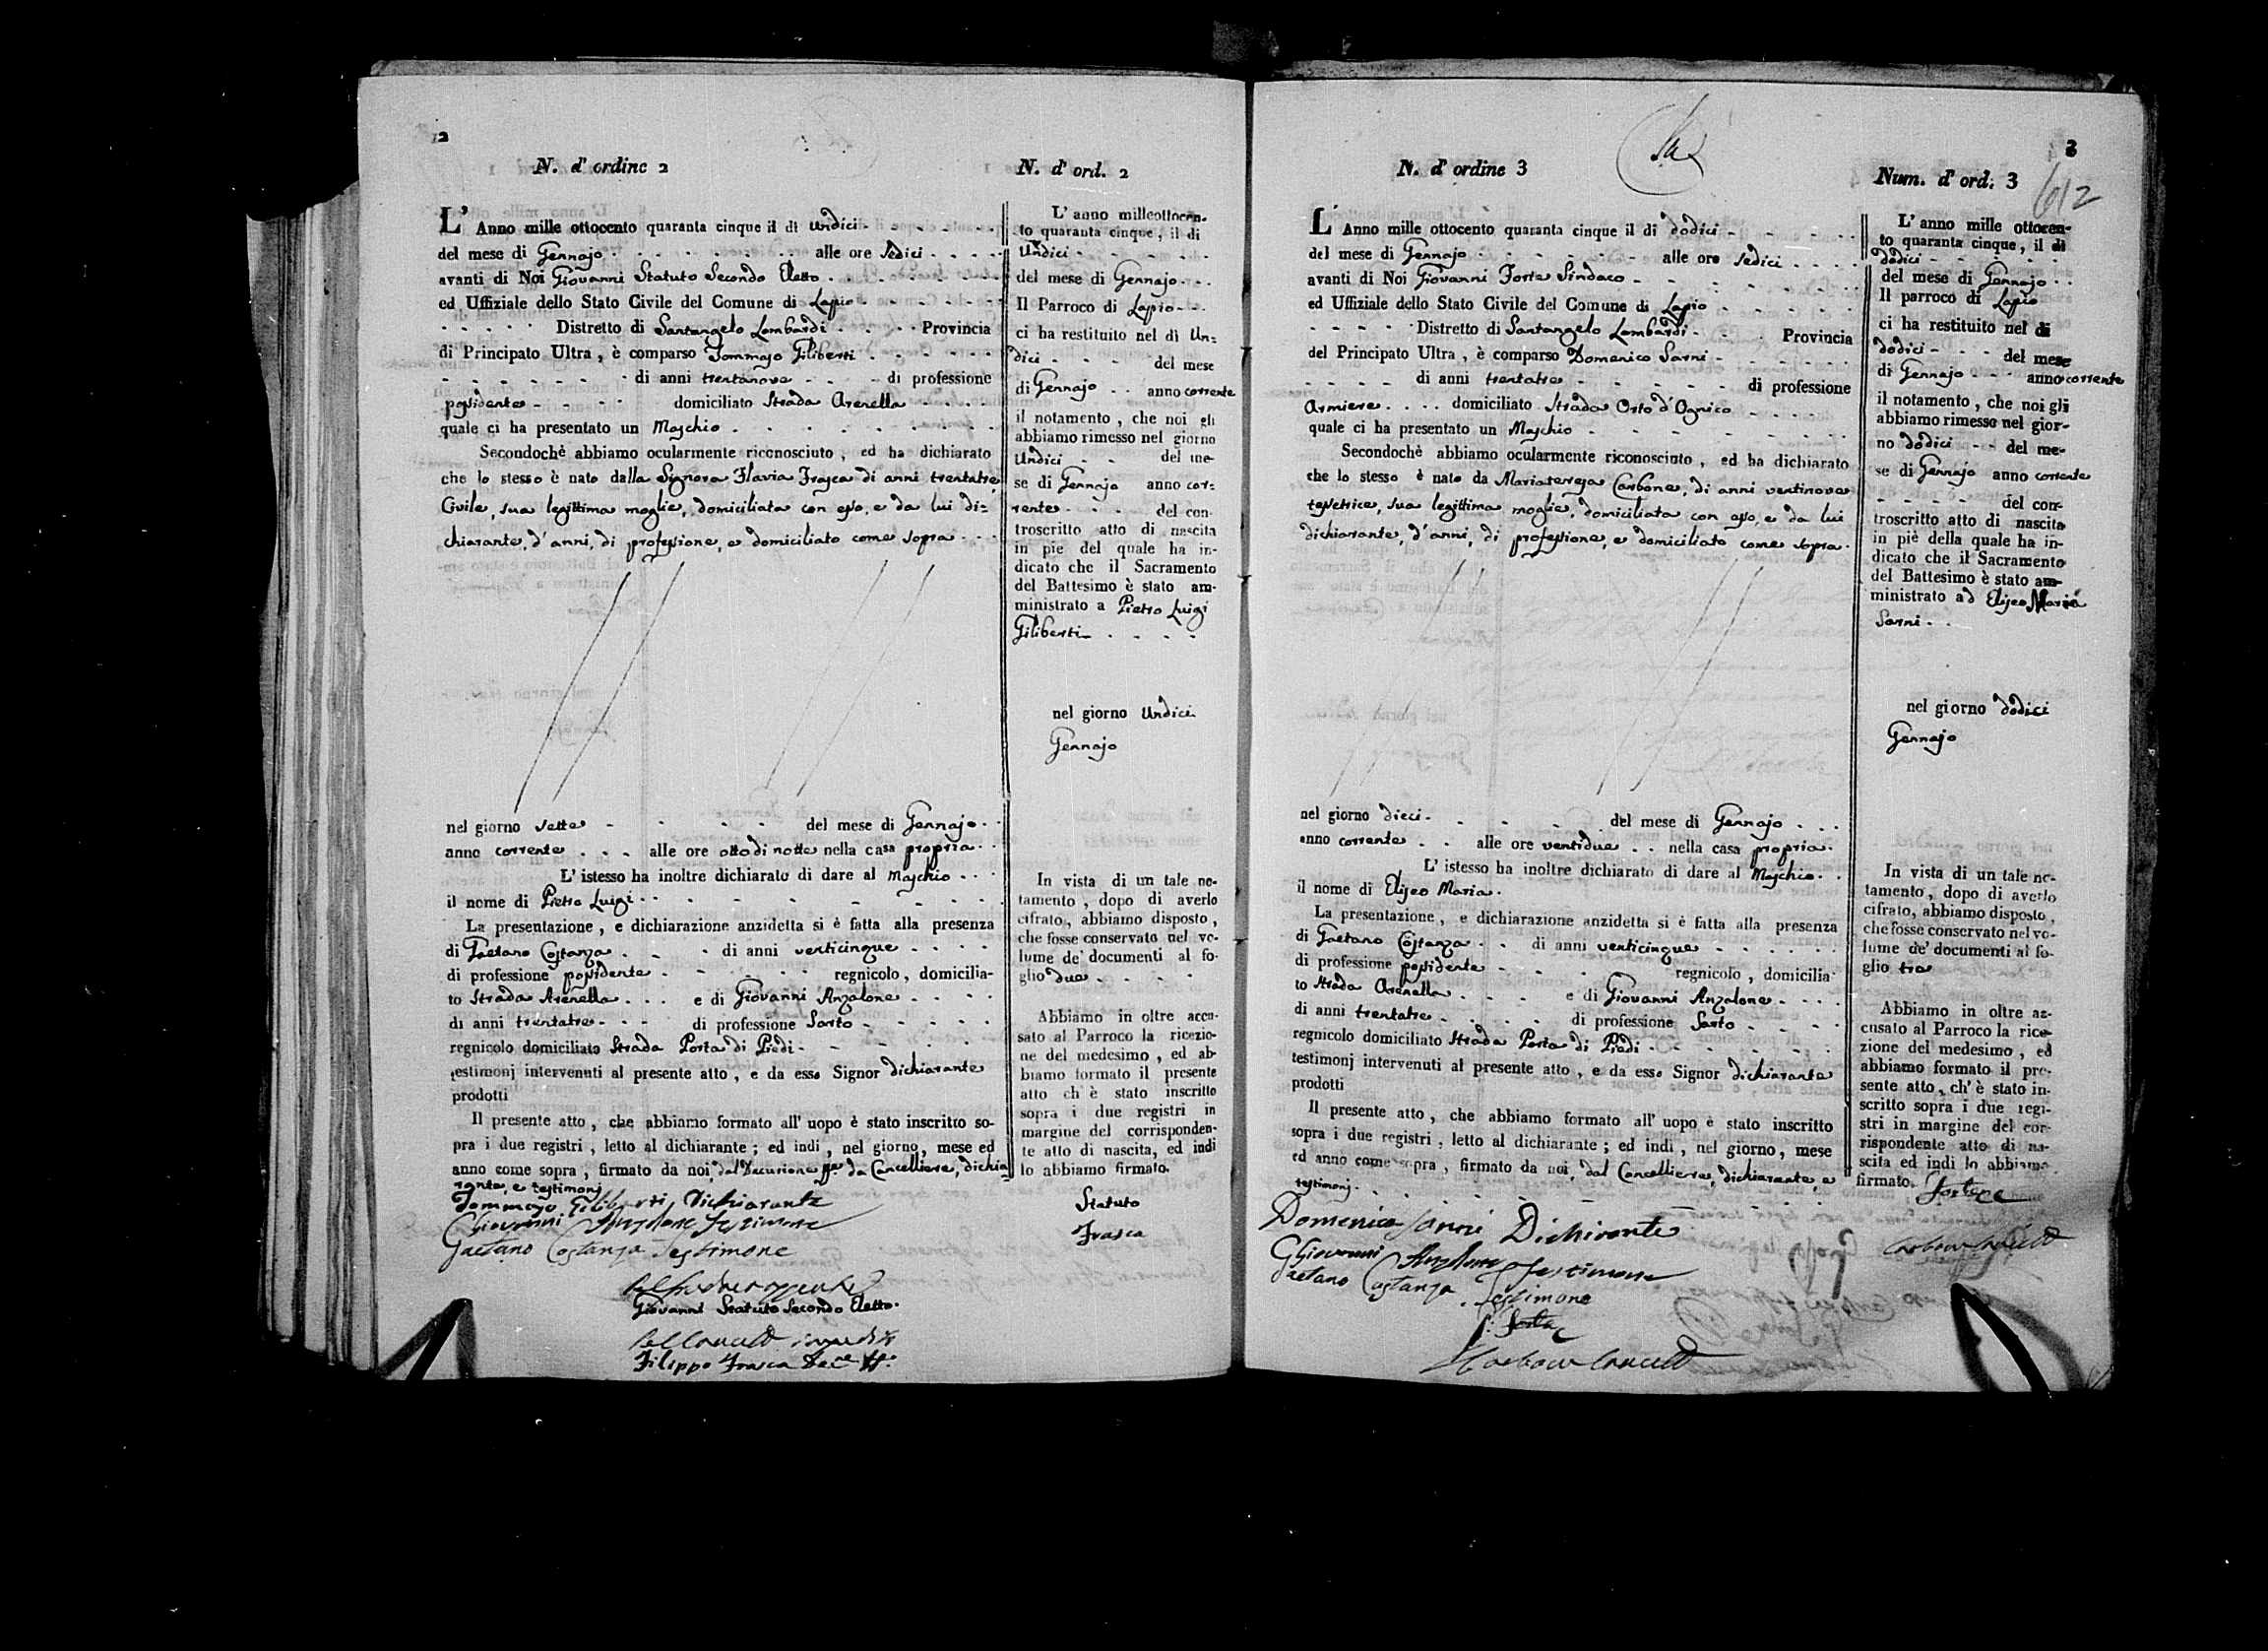 2
N. d' ordine 2
L' Anno mille ottocento quaranta cinque il dì undici
del mese di Gennajo alle ore sedici
avanti di Noi Giovanni Statuto Secondo Eletto
ed Uffiziale dello Stato Civile del Comune di Lapio
Distretto di Santangelo Lombardi Provincia
di Principato Ultra, è comparso Tommaso Filiberti
di anni trentanove di professione
possidente domiciliato Strada Arenella
quale ci ha presentato un Maschio
Secondochè abbiamo ocularmente riconosciuto, ed ha dichiarato
che lo stesso è nato dalla Signora Flavia Frasca di anni trentatre
Civile, sua legittima moglie, domiciliata con esso, e da lui di=
chiarante, d'anni, di professione, e domiciliato come sopra
nel giorno sette del mese di Gennajo
anno corrente alle ore otto di notte nella casa propria
L' istesso ha inoltre dichiarato di dare al Maschio
il nome di Pietro Luigi
La presentazione, e dichiarazione anzidetta si è fatta alla presenza
di Gaetano Costanza di anni venticinque
di professione possidente regnicolo, domicilia-
to Strada Arenella e di Giovanni Anzalone
di anni trentatre di professione Sarto
regnicolo domiciliato Strada Porta di Piedi
testimonj intervenuti al presente atto, e da esso Signor dichiarante
prodotti
Il presente atto, che abbiamo formato all' uopo è stato inscritto so-
pra i due registri, letto al dichiarante; ed indi, nel giorno, mese ed
anno come sopra, firmato da noi, dal Decurione da Cancelliere, dichia
rante, e testimonj
Tommaso Filiberti Dichiarante
Giovanni Anzalone Testimone
Gaetano Costanza Testimone
Giovanni Statuto Secondo Eletto.
Filippo Frasca
N. d' ord. 2
L' anno milleottocen-
to quaranta cinque, il dì
Undici
del mese di Gennajo
Il Parroco di Lapio
ci ha restituito nel dì Un=
dici del mese
di Gennajo anno corrente
il notamento, che noi gli
abbiamo rimesso nel giorno
Undici del me-
se di Gennajo anno cor=
rente del con-
troscritto atto di nascita
in piè del quale ha in-
dicato che il Sacramento
del Battesimo è stato am-
ministrato a Pietro Luigi
Filiberti
nel giorno Undici
Gennajo
In vista di un tale no-
tamento, dopo di averlo
cifrato, abbiamo disposto,
che fosse conservato nel vo-
lume de' documenti al fo-
glio due
Abbiamo in oltre accu-
sato al Parroco la ricezio-
ne del medesimo, ed ab-
biamo formato il presente
atto ch' è stato inscritto
sopra i due registri in
margine del corrisponden-
te atto di nascita, ed indi
lo abbiamo firmato.
Statuto
Frasca
3
612
N. d' ordine 3
L' Anno mille ottocento quaranta cinque il dì dodici
del mese di Gennajo alle ore sedici
avanti di Noi Giovanni Forte Sindaco
ed Uffiziale dello Stato Civile del Comune di Lapio
Distretto di Santangelo Lombardi Provincia
del Principato Ultra, è comparso Domenico Sarni
di anni trentatre di professione
Armiere domiciliato Strada Orto d'Agnico
quale ci ha presentato un Maschio
Secondochè abbiamo ocularmente riconosciuto, ed ha dichiarato
che lo stesso è nato da Mariateresa Carbone, di anni ventinove
tessitrice, sua legittima moglie, domiciliata con esso, e da lui
dichiarante, d'anni, di professione, e domiciliato come sopra.
nel giorno dieci del mese di Gennajo
anno corrente alle ore ventidue nella casa propria
L' istesso ha inoltre dichiarato di dare al Maschio
il nome di Eliseo Maria.
La presentazione, e dichiarazione anzidetta si è fatta alla presenza
di Gaetano Costanza di anni venticinque
di professione possidente regnicolo, domicilia-
to Strada Arenella e di Giovanni Anzalone
di anni trentatre di professione Sarto
regnicolo domiciliato Strada Porta di Piedi
testimonj intervenuti al presente atto, e da esso Signor dichiarante
prodotti
Il presente atto, che abbiamo formato all' uopo è stato inscritto
sopra i due registri, letto al dichiarante; ed indi, nel giorno, mese
ed anno come sopra, firmato da noi, dal Cancelliere, dichiarante, e
testimonj.
Domenico Sarni Dichirante
Giovanni Anzalone Testimone
Gaetano Costanza Testimone
Num. d' ord. 3
L' anno mille ottocen-
to quaranta cinque, il dì
dodici
del mese di Gennajo
Il parroco di Lapio
ci ha restituito nel dì
dodici del mese
di Gennajo anno corrente
il notamento, che noi gli
abbiamo rimesso nel gior-
no dodici del me-
se di Gennajo anno corrente
del con-
troscritto atto di nascita
in piè della quale ha in-
dicato che il Sacramento
del Battesimo è stato am-
ministrato ad Eliseo Maria
Sarni
nel giorno dodici
Gennajo
In vista di un tale no-
tamento, dopo di averlo
cifrato, abbiamo disposto,
che fosse conservato nel vo-
lume de' documenti al fo-
glio tre
Abbiamo in oltre ac-
cusato al Parroco la rice-
zione del medesimo, ed
abbiamo formato il pre-
sente atto, ch' è stato in-
scritto sopra i due regi-
stri in margine del cor-
rispondente atto di na-
scita ed indi lo abbiamo
firmato.